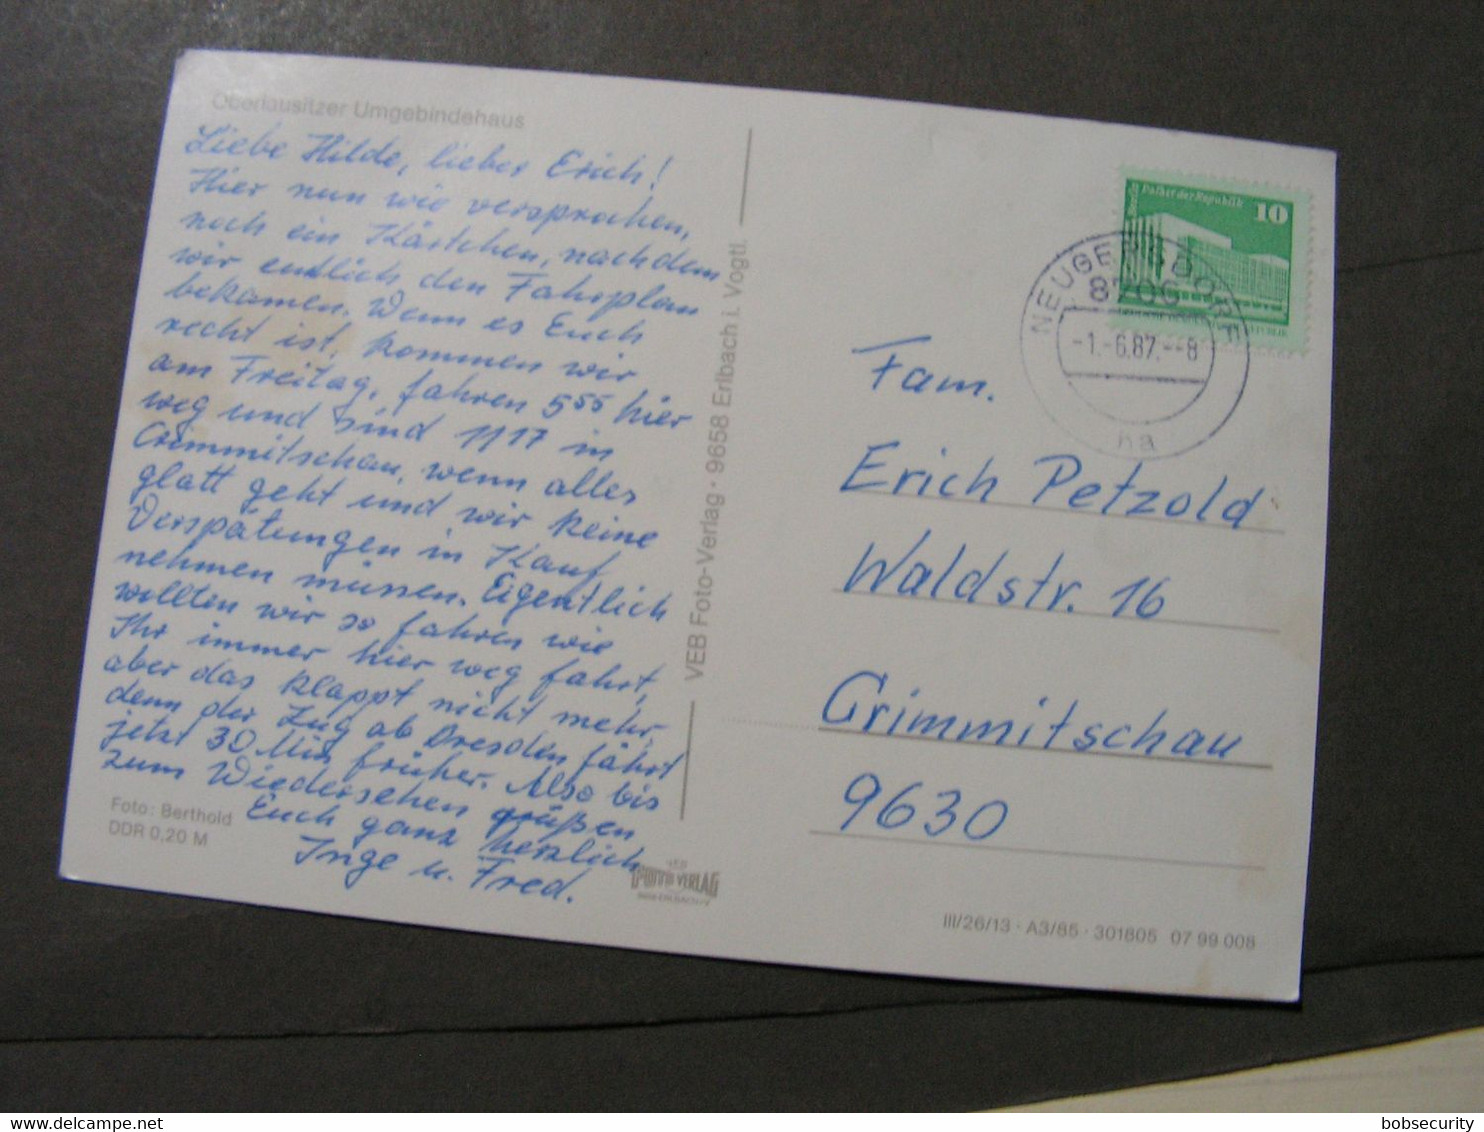 Oberlausitzer Umgebindehaus
Liebe Hilde, lieber Erich!
Hier nun wie versprochen,
noch ein Kärtchen, nachdem
wir endlich den Fahrplan
bekamen. Wenn es Euch
recht ist, kommen wir
am Freitag, fahren 5⁵⁵ hier
weg und sind 11¹⁷ in
Crimmitschau, wenn alles
glatt geht und wir keine
Verspätungen in Kauf
nehmen müssen. Eigentlich
wollten wir so fahren wie
Ihr immer hier weg fahrt,
aber das klappt nicht mehr,
denn der Zug ab Dresden fährt
jetzt 30 Min früher. Also bis
zum Wiedersehen grüßen
Euch ganz herzlich
Inge u. Fred.
Foto: Berthold
DDR 0,20 M
VEB Foto-Verlag · 9658 Erlbach i. Vogtl.
VERLAG
Palast der Republik
10
NEUGERSDORF
8706
-1.-6.87.--8
ha
Fam.
Erich Petzold
Waldstr. 16
Crimmitschau
9630
III/26/13 · A3/85 · 301805 07 99 008
bobsecurity